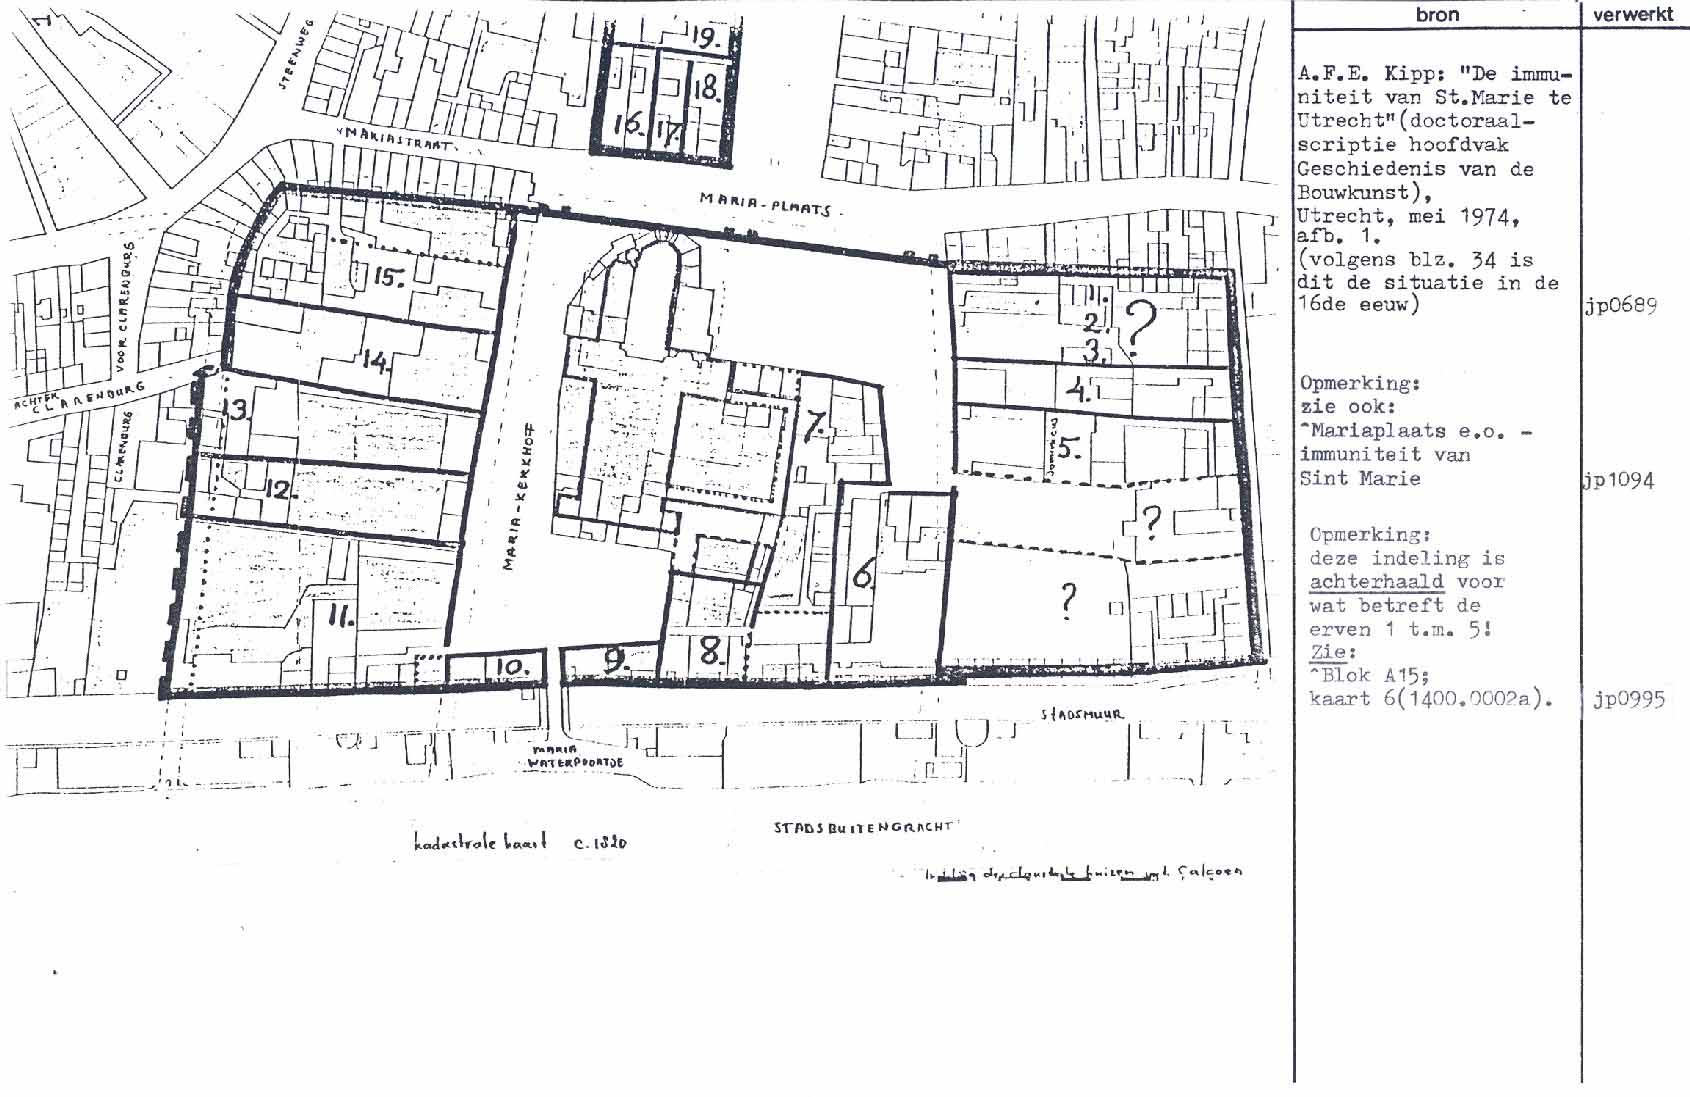 STEENWEG
19.
18.
16. 17.
MARIASTRAAT
MARIA-PLAATS
VOOR CLARENBURG
ACHTER
CLARENBURG
CLARENBURG
15.
14.
13.
12.
11.
10.
9.
8.
7.
6.
MARIA-KERKHOFF
1.
2.
3.
?
4.
5.
?
?
STADSMUUR
MARIA
WATERPOORTJE
STADSBUITENGRACHT
kadastrale kaart c. 1820
huizen
bron
verwerkt
A.F.E. Kipp: "De immu-
niteit van St.Marie te
Utrecht"(doctoraal-
scriptie hoofdvak
Geschiedenis van de
Bouwkunst),
Utrecht, mei 1974,
afb. 1.
(volgens blz. 34 is
dit de situatie in de
16de eeuw)
jp0689
Opmerking:
zie ook:
^Mariaplaats e.o. -
immuniteit van
Sint Marie
jp1094
Opmerking:
deze indeling is
achterhaald voor
wat betreft de
erven 1 t.m. 5!
Zie:
^Blok A15;
kaart 6(1400.0002a).
jp0995